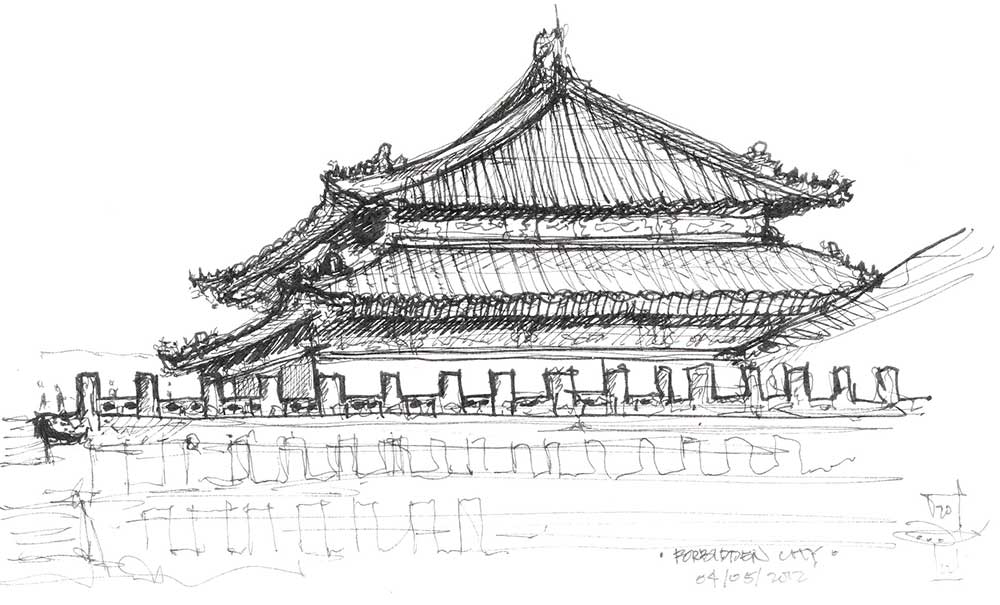 • FORBIDDEN CITY •
04/05/2012